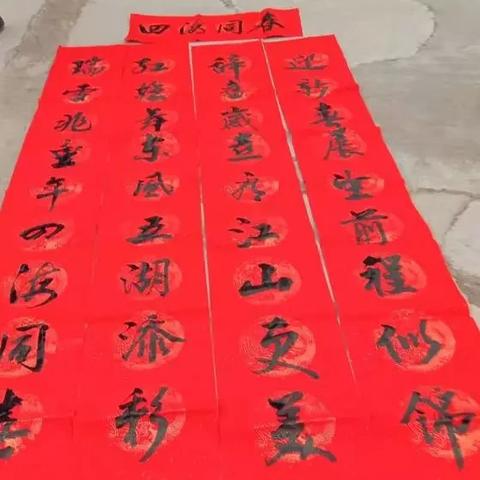 四海同春
迎新春展望前程似锦
辞旧岁喜看江山更美
红 东风五湖添彩
瑞雪兆丰年四海同春